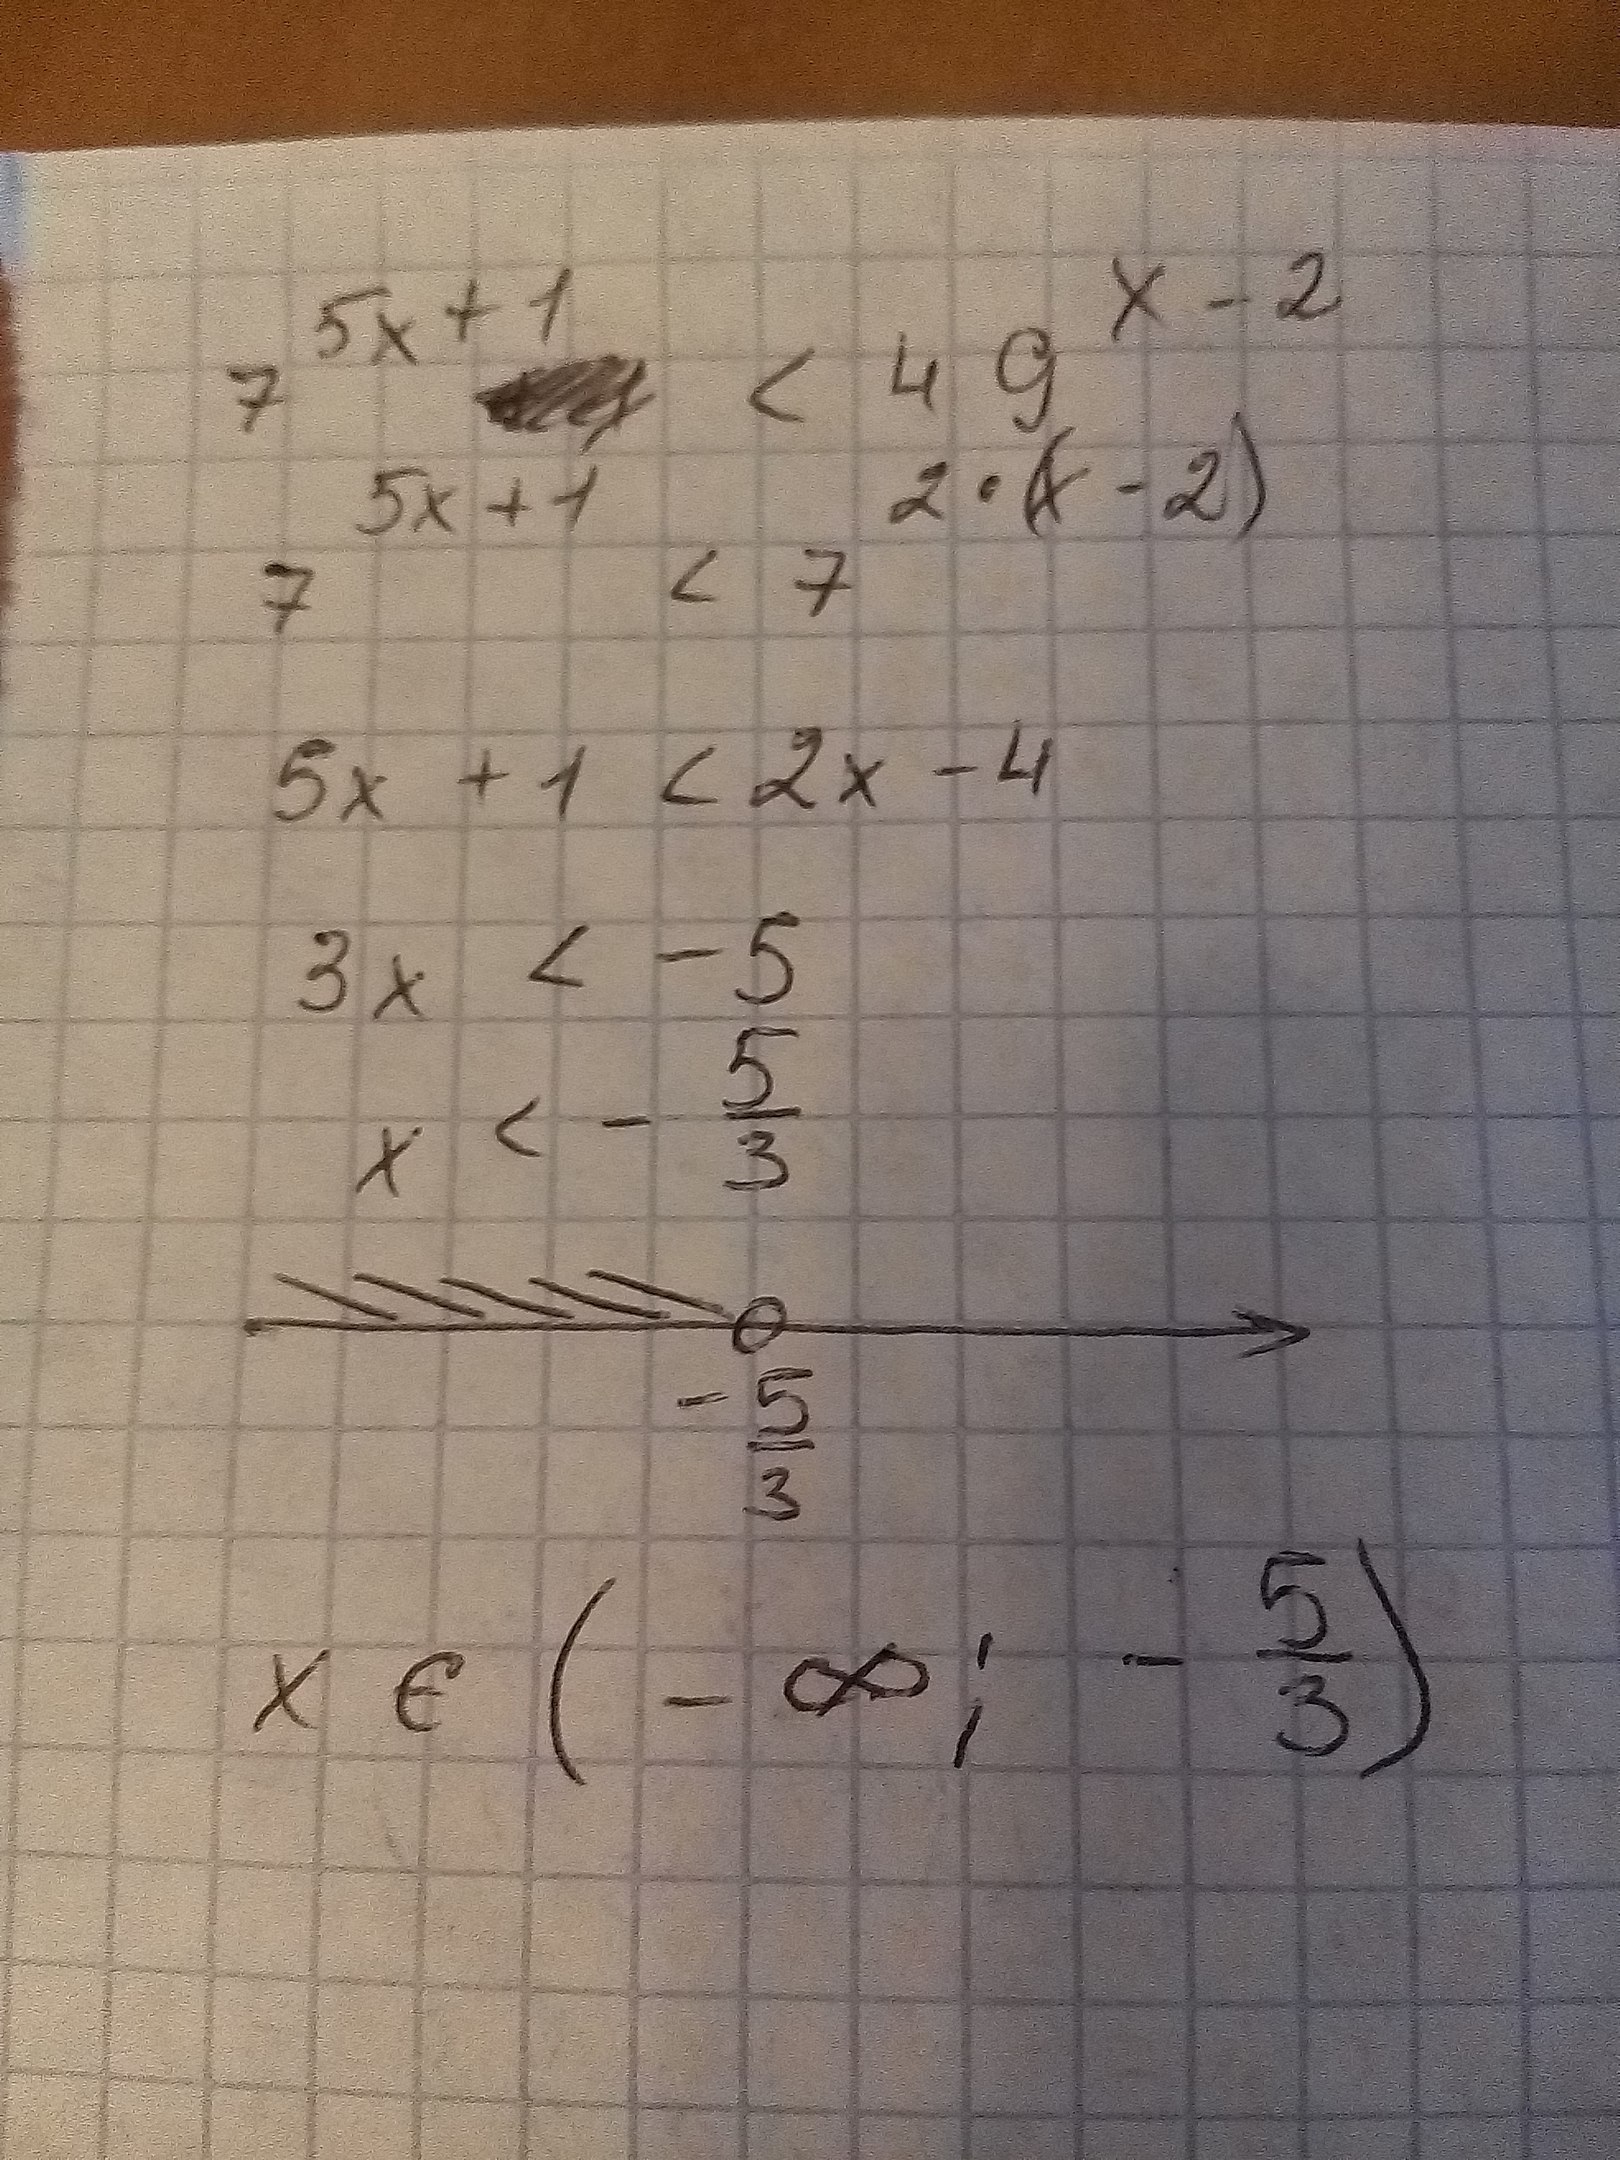 7^{5x+1} < 49^{x-2}
7^{5x+1} < 7^{2·(x-2)}
5x + 1 < 2x - 4
3x < -5
x < -\frac{5}{3}
-\frac{5}{3}
x ∈ (-∞; -\frac{5}{3})